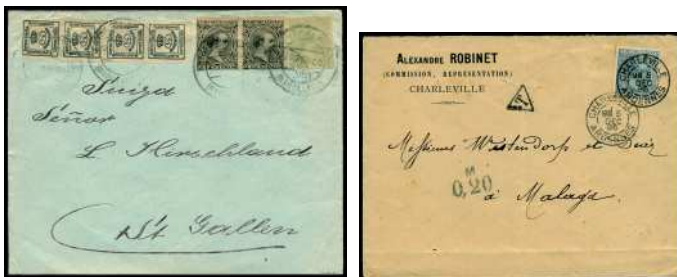 Suiza
Señor
L Hirschland
St Gallen
ALEXANDRE ROBINET
(COMMISSION, REPRÉSENTATION)
CHARLEVILLE
T
CHARLEVILLE
5
DEC
ARDENNES
CHARLEVILLE
5
DEC
ARDENNES
Messieurs Westendorp et
M
0,20
à Malaga